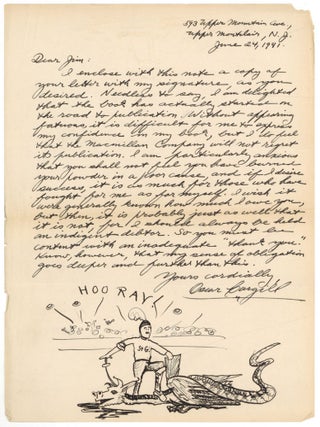 593 Upper Mountain Ave,
Upper Montclair, N. J.
June 24, 1941.
Dear Jim:
I enclose with this note a copy of
your letter with my signature, as you
desired. Needless to say, I am delighted
that the book has actually started on
the road to publication. Without appearing
fatuous, it is difficult for me to express
my confidence in my book, but I do feel
that the Macmillan Company will not regret
its publication. I am particularly anxious
that you shall not feel you have burned
your powder in a poor cause, and if I desire
success, it is as much for those who have
fought for me as for myself. I wish it
were generally known how much I owe you,
but then, it is probably just as well that
it is not, for I should always be held
an indigent debtor. So you must be
content with an inadequate "thank you."
Know, however, that my sense of obligation
goes deeper and further than this.
Yours cordially
Oscar Cargill
HOORAY!
St G